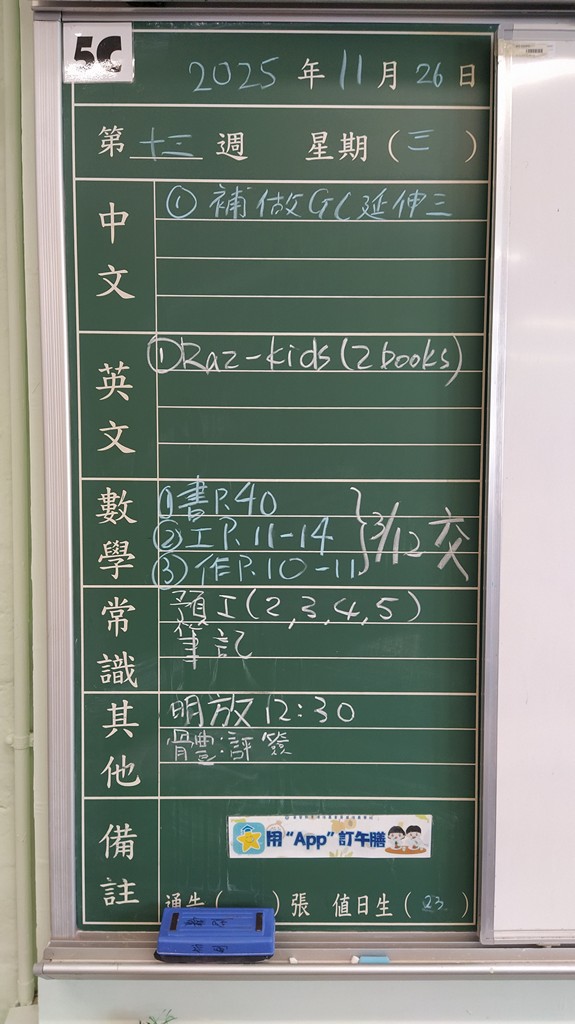 5C
2025年11月26日
第十三週 星期(三)
中文
① 補做GC延伸三
英文
① Raz-kids (2 books)
數學
① 書P.40
② 工P.11-14
③ 作P.10-11
} 3/12 交
常識
預工(2,3,4,5)
筆記
其他
明放 12:30
體:評簽
備註
用 “App” 訂午膳
通告( )張 值日生(23)